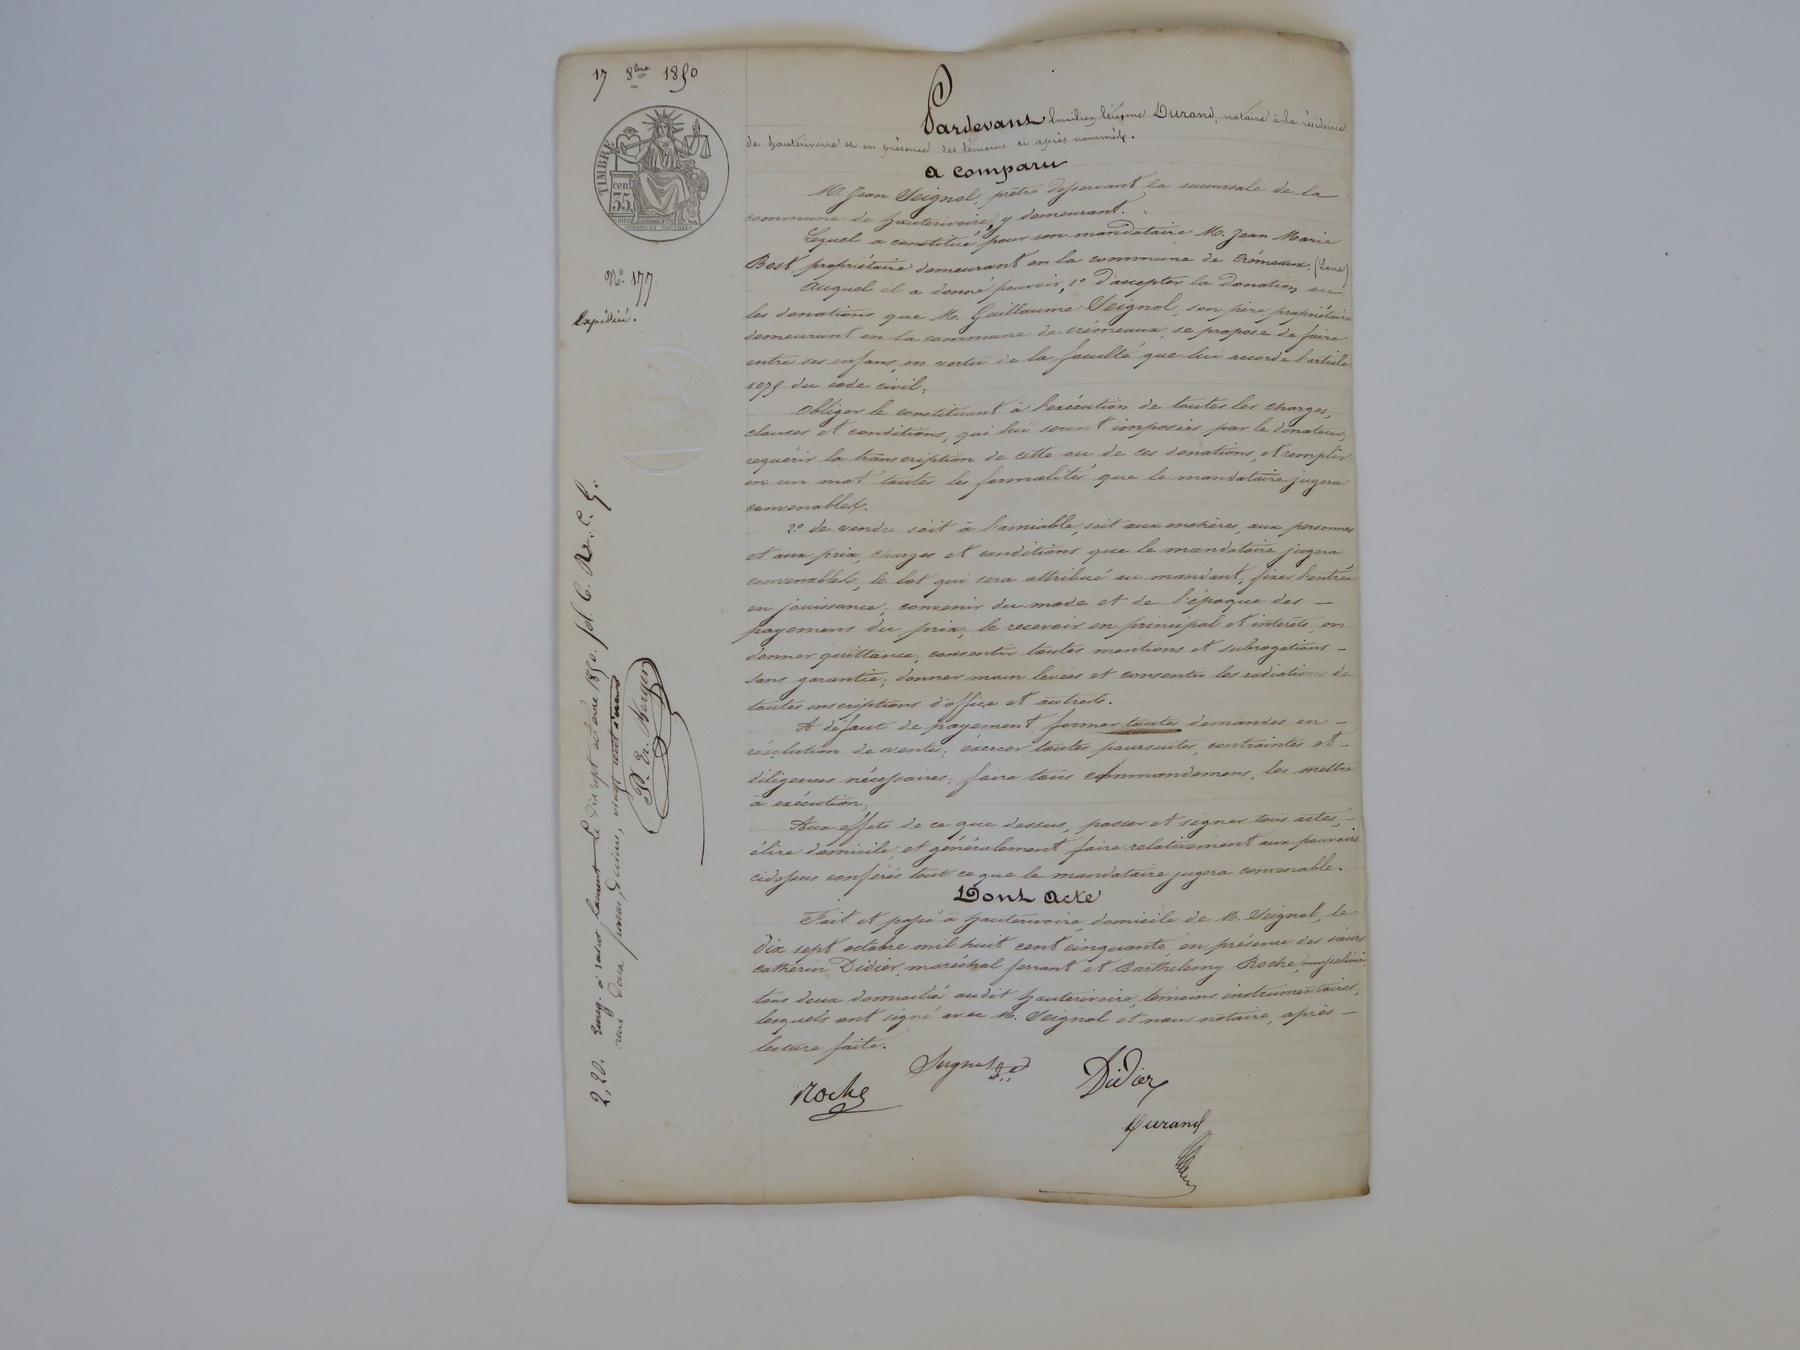 17 8bre 1850
TIMBRE
cen.
35
N° 177.
Expédié.
Pardevant Emilien Etienne Durand, notaire à la résidence
de hauterivoire et en présence des témoins ci après nommés.
a comparu
M. Jean Seignol, prêtre desservant la succursale de la
commune de hauterivoire, y demeurant.
Lequel a constitué pour son mandataire M. Jean Marie
Bost, propriétaire demeurant en la commune de Crémeaux, (Loire)
Auquel il a donné pouvoir, 1° d'accepter la donation ou
les donations que M. Guillaume Seignol, son père propriétaire
demeurant en la commune de crémeaux, se propose de faire
entre ses enfans, en vertu de la faculté que lui accorde l'article
1075 du code civil;
Obliger le constituant à l'exécution de toutes les charges,
clauses et conditions, qui lui seront imposées par le donateur;
requérir la transcription de cette ou de ces donations, et remplir
en un mot toutes les formalités que le mandataire jugera
convenables.
2° de vendre soit à l'amiable, soit aux enchères, aux personnes
et aux prix, charges et conditions que le mandataire jugera
convenables, le lot qui sera attribué au mandant; fixer l'entrée
en jouissance; convenir du mode et de l'époque des —
payemens du prix; le recevoir en principal et intérêts, en
donner quittance; consentir toutes mentions et subrogations —
sans garantie; donner main levées et consentir les radiations de
toutes inscriptions d'office et autres.
A défaut de payement, former toutes demandes en —
résolution de ventes; éxercer toutes poursuites, contraintes et —
diligences nécessaires; faire tous commandemens, les mettre
à exécution;
Aux effets de ce que dessus, passer et signer tous actes, —
élire domicile, et généralement faire relativement aux pouvoirs
cidessus conférés tout ce que le mandataire jugera convenable.
Dont Acte
Fait et passé à hauterivoire, domicile de M. Seignol, le
dix sept octobre mil huit cent cinquante, en présence des sieurs
Catherin Didier, maréchal ferrant et Barthelemy Roche,
tous deux domiciliés audit hauterivoire, témoins instrumentaires,
lesquels ont signé avec M. Seignol et nous notaire, après —
lecture faite.
Seignol
Roche
Didier
Durand
2,20. Enreg. à Saint Laurent le dix sept octobre 1850. fol. 6. Re. C. 9.
reçu deux francs, décime, vingt centimes